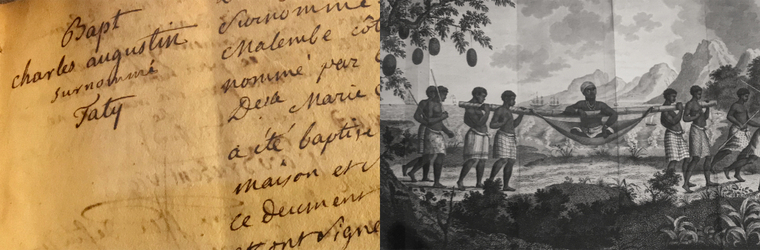 Bapt
charles augustin
surnommé
Taty
surnommé
Malembe cô
nommé par
Desle Marie
a été baptisé
maison et
ce document
et ont signé